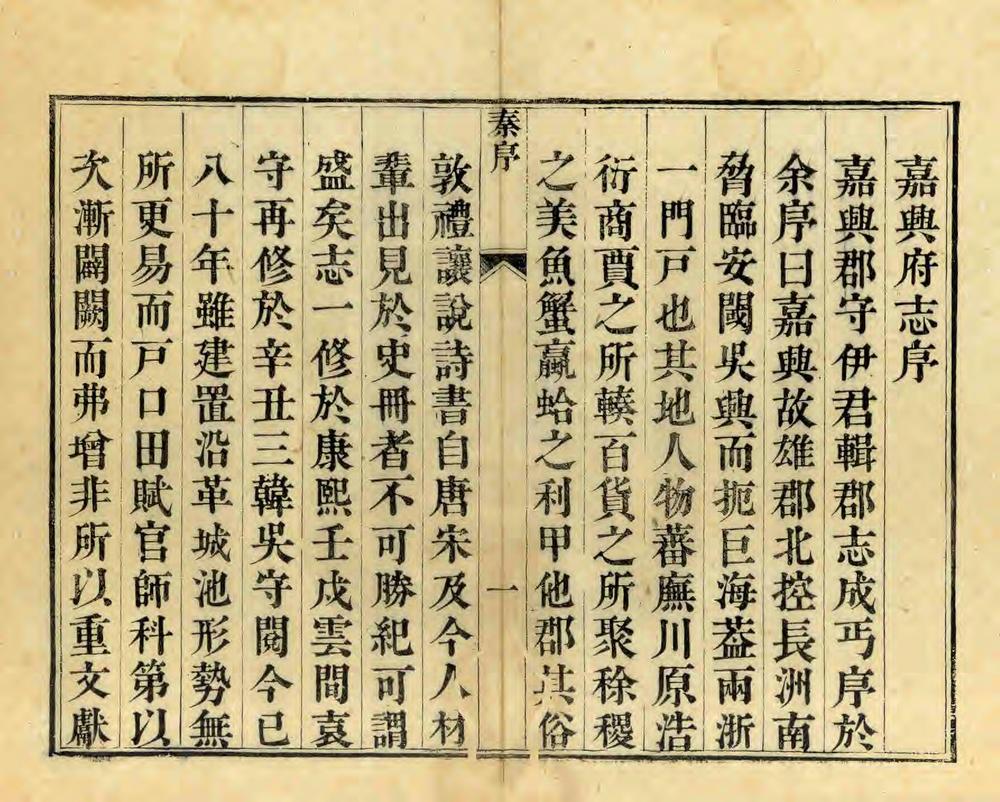 嘉興府志序
嘉興郡守伊君輯郡志成丐序於
余序曰嘉興故雄郡北控長洲南
脅臨安閾吳興而扼巨海葢兩浙
一門戸也其地人物蕃廡川原浩
衍商賈之所轃百貨之所聚稌稷
之美魚蟹蠃蛤之利甲他郡其俗
秦序
一
敦禮讓說詩書自唐宋及今人材
輩出見於史冊者不可勝紀可謂
盛矣志一修於康熙壬戍雲間袁
守再修於辛丑三韓吳守閱今已
八十年雖建置沿革城池形勢無
所更易而戸口田賦官師科第以
次漸闢闕而弗增非所以重文獻